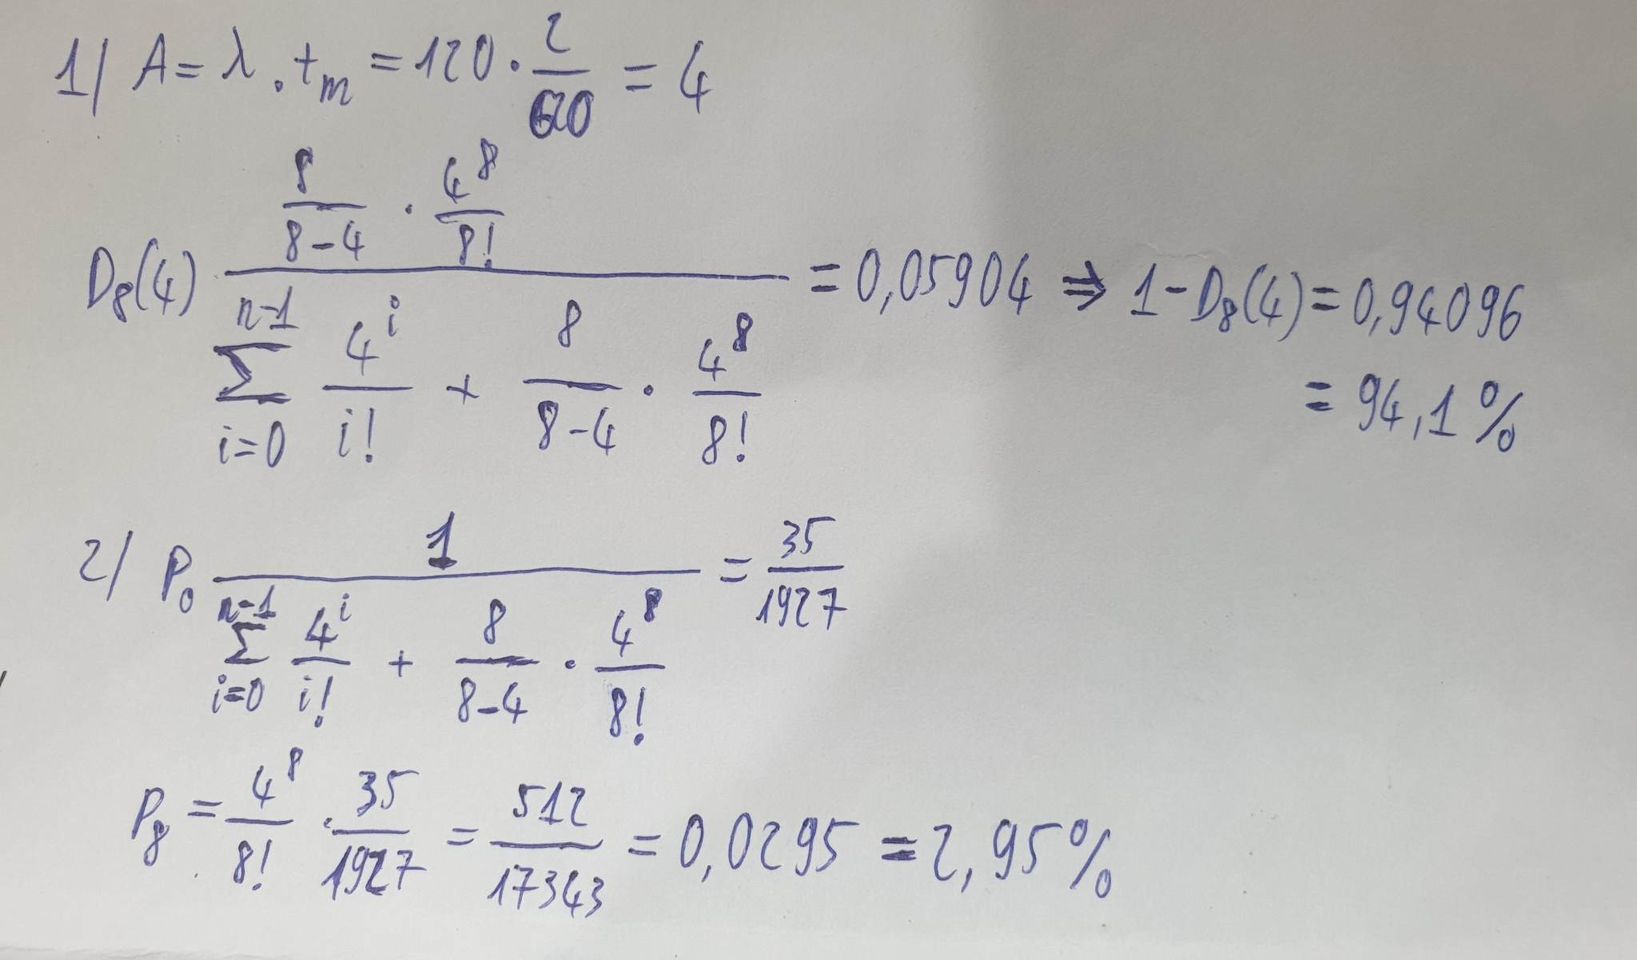 1/ A = λ · t_m = 120 · 2/60 = 4
D₈(4) (8/(8-4) · 4⁸/8!) / (∑_{i=0}^{n-1} 4^i/i! + 8/(8-4) · 4⁸/8!) = 0,05904 ⇒ 1-D₈(4) = 0,94096
= 94,1%
2/ P₀ 1 / (∑_{i=0}^{n-1} 4^i/i! + 8/(8-4) · 4⁸/8!) = 35/1927
P₈ = 4⁸/8! · 35/1927 = 512/17343 = 0,0295 = 2,95%